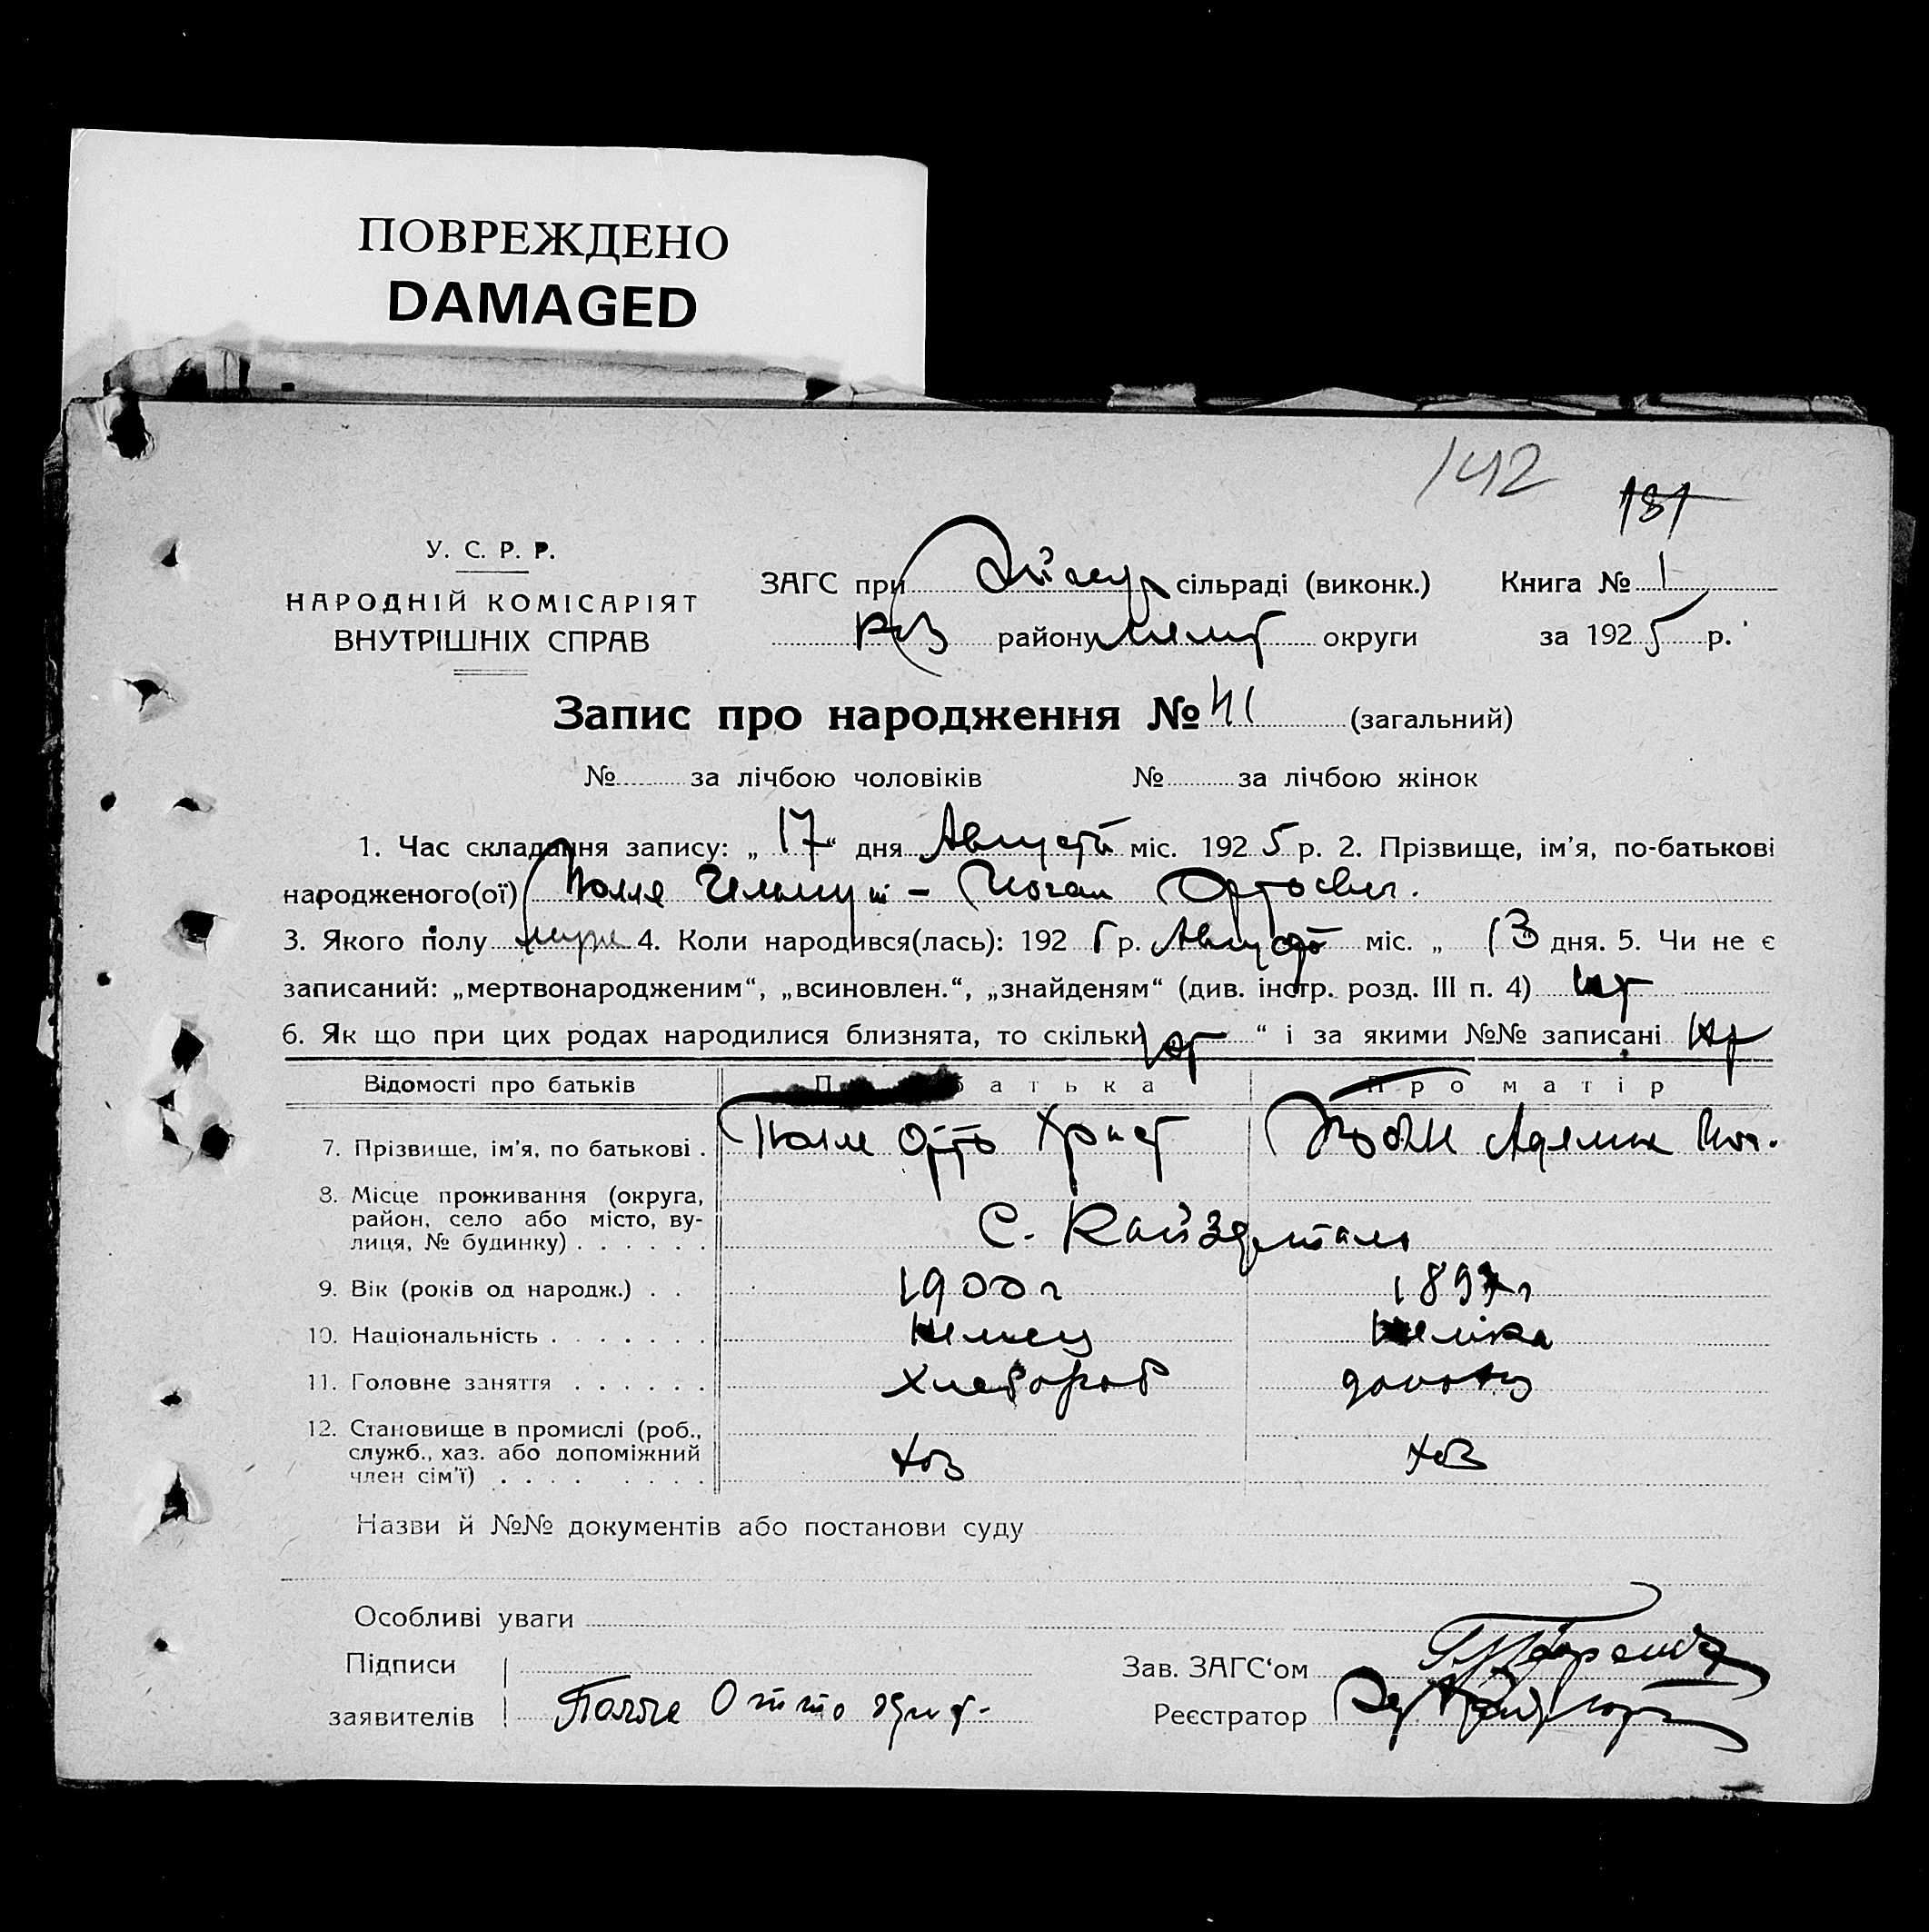 ПОВРЕЖДЕНО
DAMAGED
142
181
У. С. Р. Р.
НАРОДНІЙ КОМІСАРІЯТ
ВНУТРІШНІХ СПРАВ
ЗАГС при сільраді (виконк.) Книга № 1
району округи за 1925 р.
Запис про народження № 41 (загальний)
№ за лічбою чоловіків № за лічбою жінок
1. Час складання запису: „17“ дня Августа міс. 1925 р. 2. Прізвище, ім'я, по-батькові
народженого(ої) Полле Гельмут - Йоган Оттович.
3. Якого полу муж 4. Коли народився(лась): 1925 р. Августа міс. „13“ дня. 5. Чи не є
записаний: „мертвонародженим“, „всиновлен.“, „знайденям“ (див. інстр. розд. III п. 4) нет
6. Як що при цих родах народилися близнята, то скільки нет “ і за якими №№ записані нет
Відомості про батьків Про батька Про матір
7. Прізвище, ім'я, по батькові . Полле Отто Христ
8. Місце проживання (округа,
район, село або місто, ву-
лиця, № будинку) . . . . . . С. Кайзерталь
9. Вік (років од народж.) . . 1900 г
10. Національність . . . . . . . Немец Немка
11. Головне заняття . . . . . . Хлебороб
12. Становище в промислі (роб.,
служб., хаз. або допоміжний
член сім'ї) . . . . . . . . . хоз хоз
Назви й №№ документів або постанови суду
Особливі уваги
Підписи
заявителів Полле Отто
Зав. ЗАГС‘ом
Реєстратор